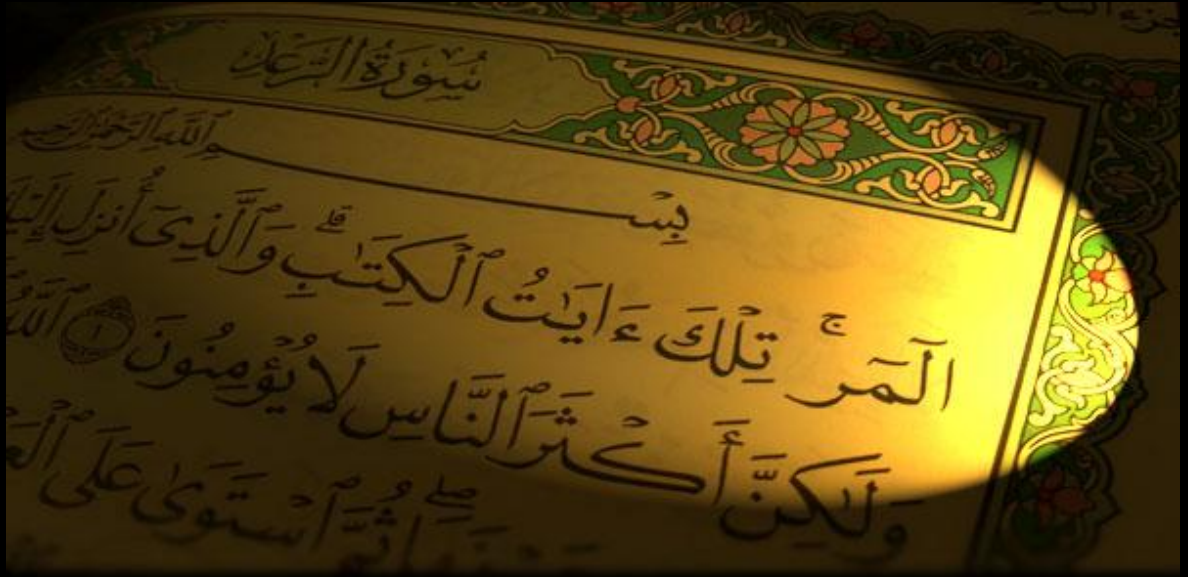 سُورَةُ الرَّعْدِ
بِسْمِ ٱللَّهِ ٱلرَّحْمَٰنِ ٱلرَّحِيمِ
الٓمٓر ۚ تِلْكَ ءَايَٰتُ ٱلْكِتَٰبِ ۗ وَٱلَّذِىٓ أُنزِلَ
وَلَٰكِنَّ أَكْثَرَ ٱلنَّاسِ لَا يُؤْمِنُونَ ١ ٱللَّهُ
ثُمَّ ٱسْتَوَىٰ عَلَى